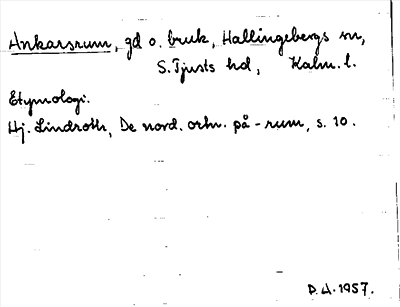 Ankarsrum, gd o. bruk, Hallingebergs sn,
S. Tjusts hd, Kalm. l.
Etymologi.
Hj. Lindroth, De nord. ortn. på -rum, s. 10.
P. A. 1957.